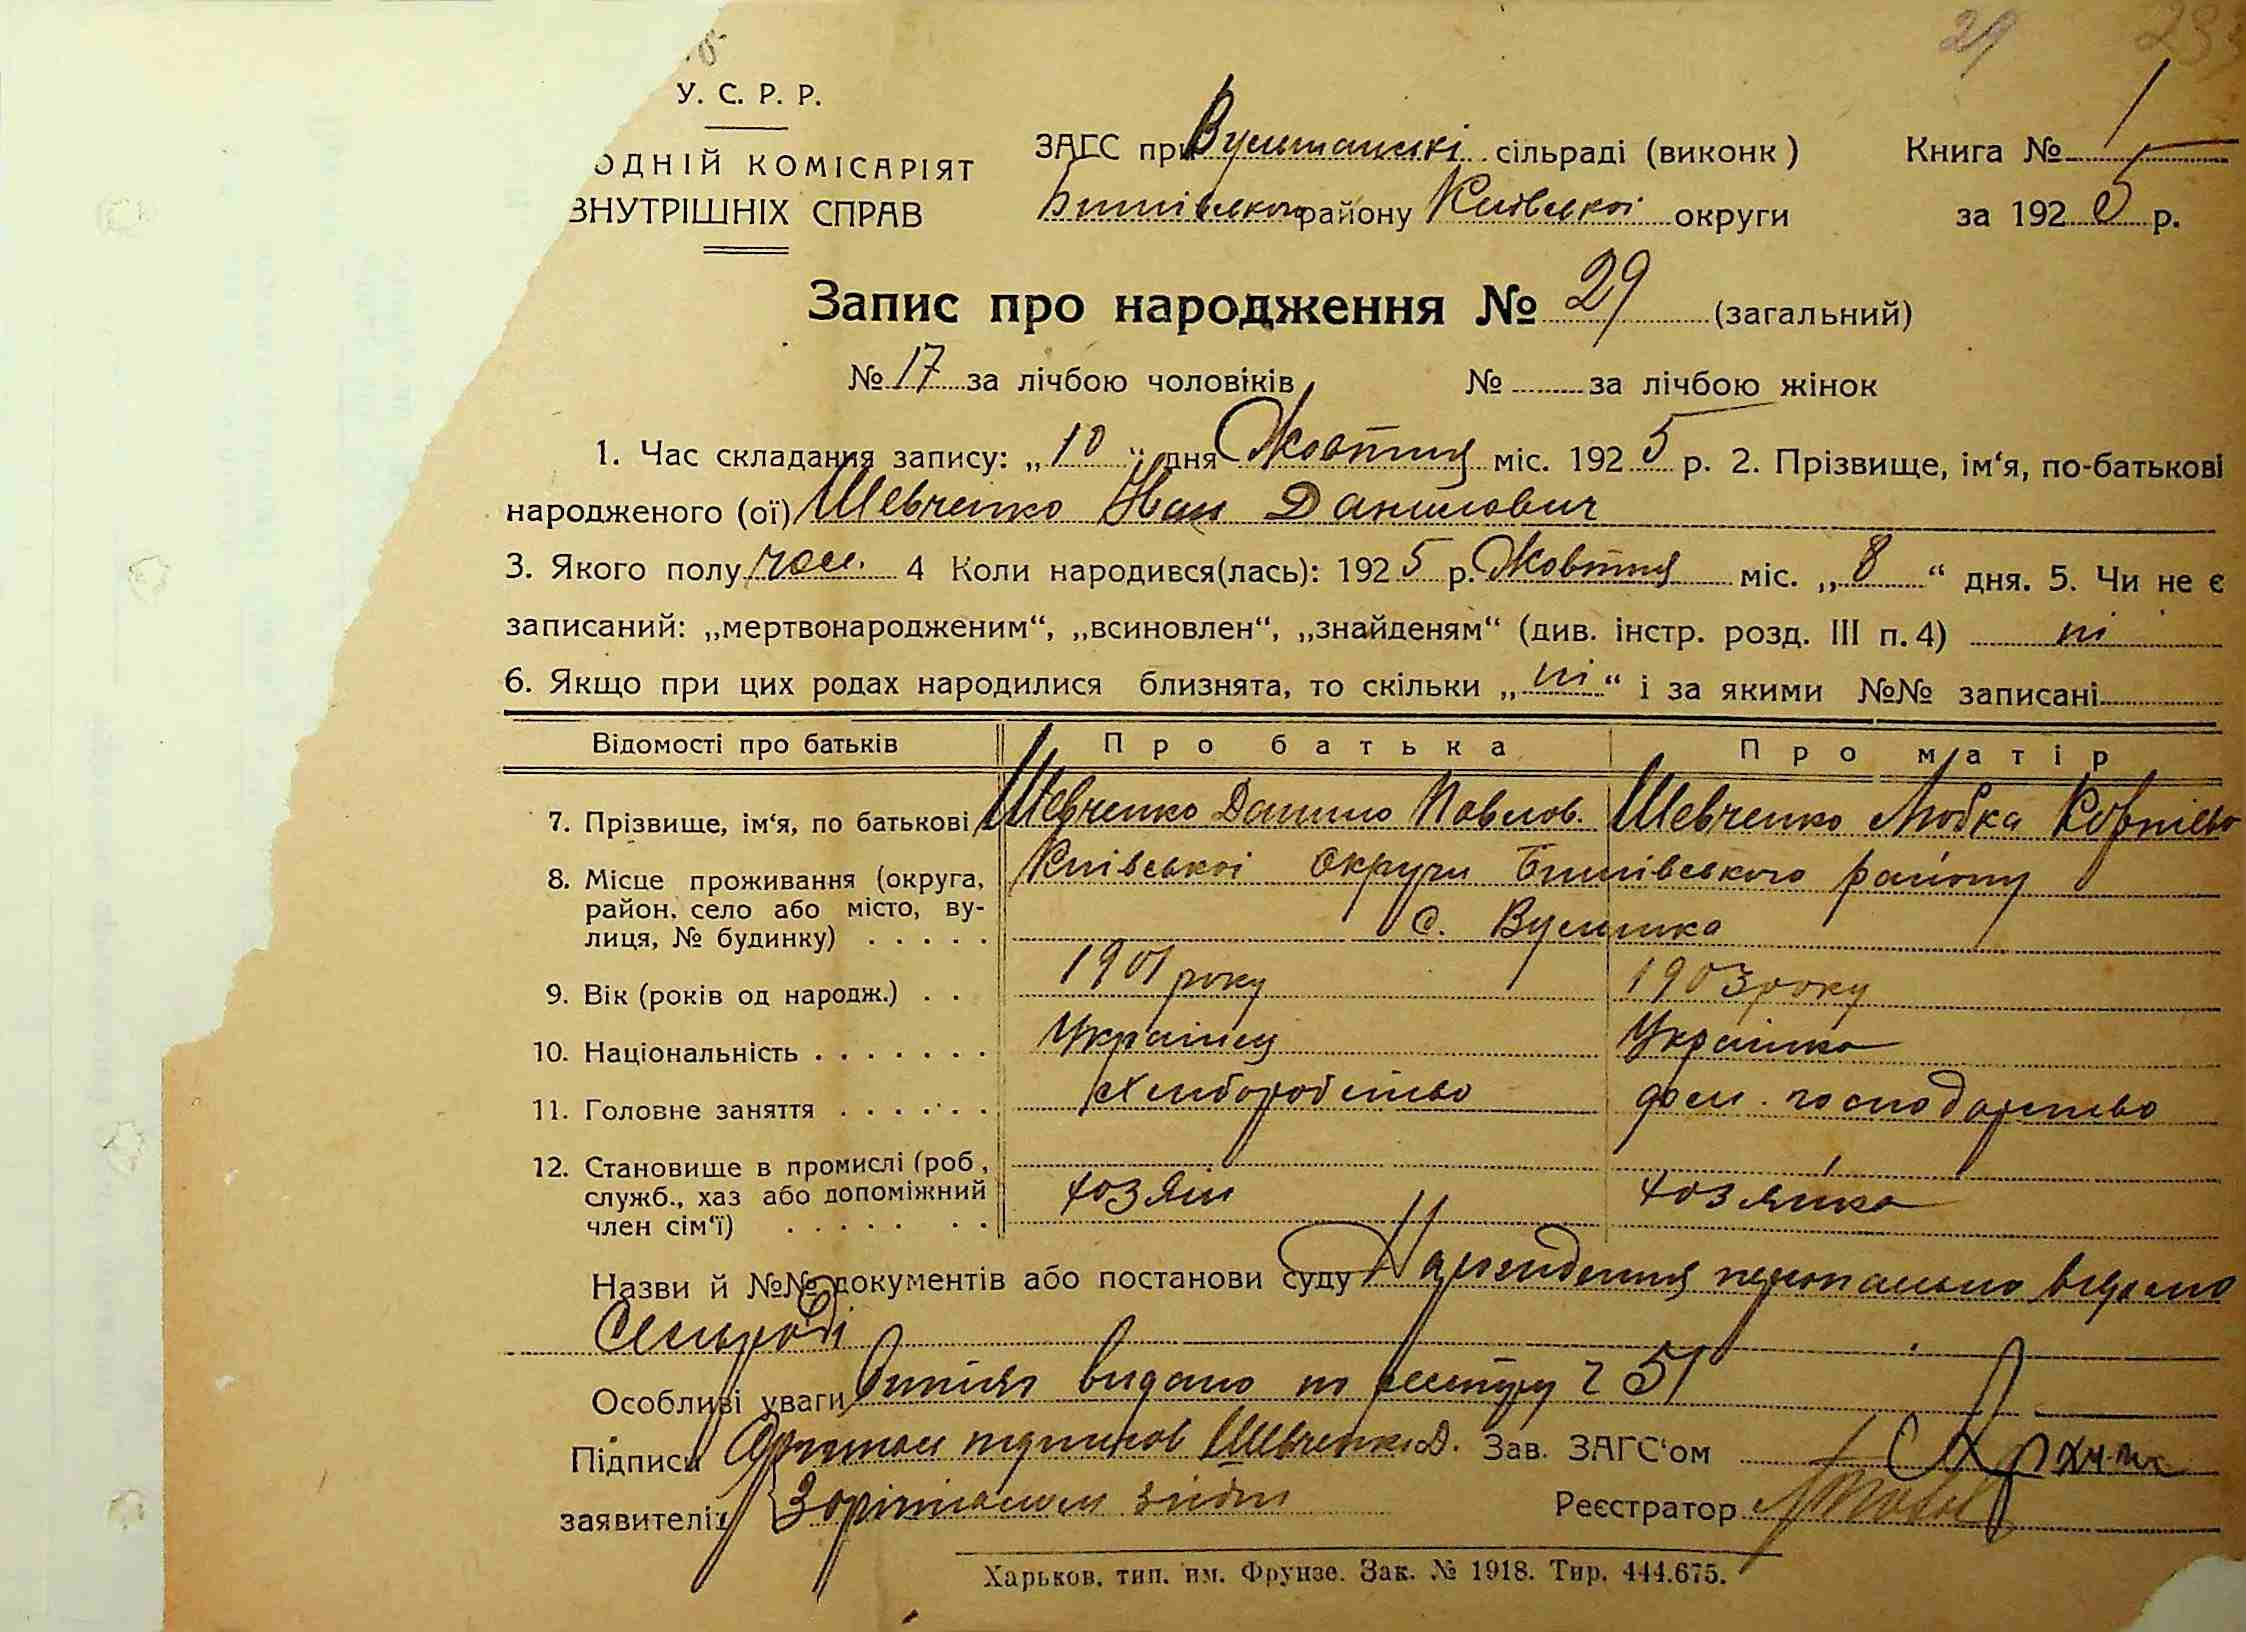 29
У. С. Р. Р.
ОДНІЙ КОМІСАРІЯТ
ВНУТРІШНІХ СПРАВ
ЗАГС при сільраді (виконк)
району Київської округи
Книга № 1
за 1925 р.
Запис про народження № 29 (загальний)
№ 17 за лічбою чоловіків № за лічбою жінок
1. Час складання запису: „10“ дня Жовтня міс. 1925 р. 2. Прізвище, ім‘я, по-батькові
народженого (ої) Шевченко Іван Данилович
3. Якого полу чол. 4 Коли народився(лась): 1925 р. Жовтня міс. „8“ дня. 5. Чи не є
записаний: „мертвонародженим“, „всиновлен“, „знайденям“ (див. інстр. розд. III п. 4) ні
6. Якщо при цих родах народилися близнята, то скільки „ні“ і за якими №№ записані
Відомості про батьків Про батька Про матір
7. Прізвище, ім‘я, по батькові Шевченко Данило Павлов. Шевченко Любка
8. Місце проживання (округа, Київської округи району
район, село або місто, ву-
лиця, № будинку) с.
9. Вік (років од народж.) 1901 року 1903 року
10. Національність Українец Українка
11. Головне заняття хлиборобство дом. господарство
12. Становище в промислі (роб,
служб., хаз або допоміжний хозяін хозяйка
член сім‘ї)
Назви й №№ документів або постанови суду персонально відомо
Сельраді
Особливі уваги видано по реєстру 51
Підписи Шевченко Д. Зав. ЗАГС‘ом
заявителів Реєстратор
Харьков, тип. им. Фрунзе. Зак. № 1918. Тир. 444.675.